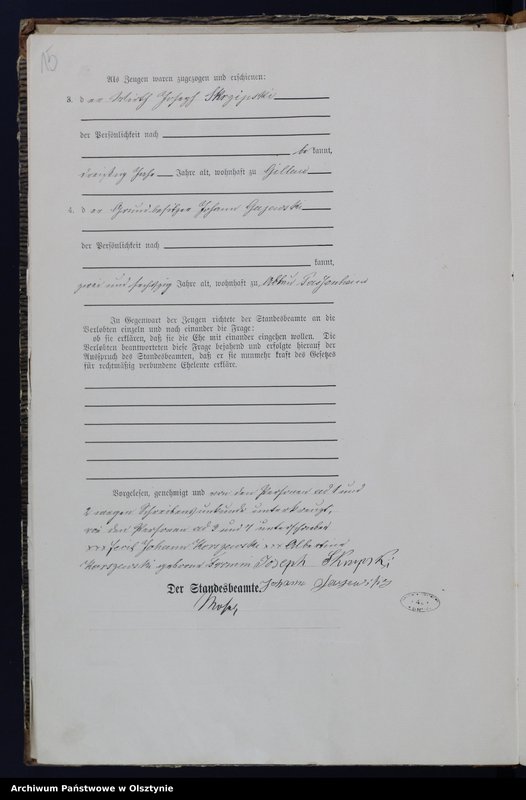 15
Als Zeugen waren zugezogen und erschienen:
3. der Wirth Joseph Skrzipski
der Persönlichkeit nach
be kannt,
dreißig Jahre Jahre alt, wohnhaft zu Gillau
4. der Grundbesitzer Johann
der Persönlichkeit nach
kannt,
zwei und sechszig Jahre alt, wohnhaft zu
In Gegenwart der Zeugen richtete der Standesbeamte an die
Verlobten einzeln und nach einander die Frage:
ob sie erklären, daß sie die Ehe mit einander eingehen wollen. Die
Verlobten beantworteten diese Frage bejahend und erfolgte hierauf der
Ausspruch des Standesbeamten, daß er sie nunmehr kraft des Gesetzes
für rechtmäßig verbundene Eheleute erkläre.
Vorgelesen, genehmigt und von den Personen ad 1 und
2 wegen Schreibensunkunde unterkreuzt,
von den Personen ad 3 und 4 unterschrieben
xxx Johann xxx Albertine
geborene Joseph
Der Standesbeamte. Johann
Archiwum Państwowe w Olsztynie